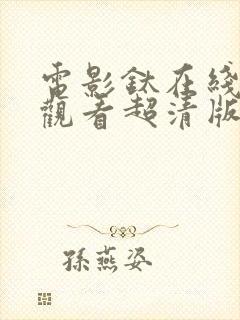 電影鈦在綫
觀看超清版
孫燕姿